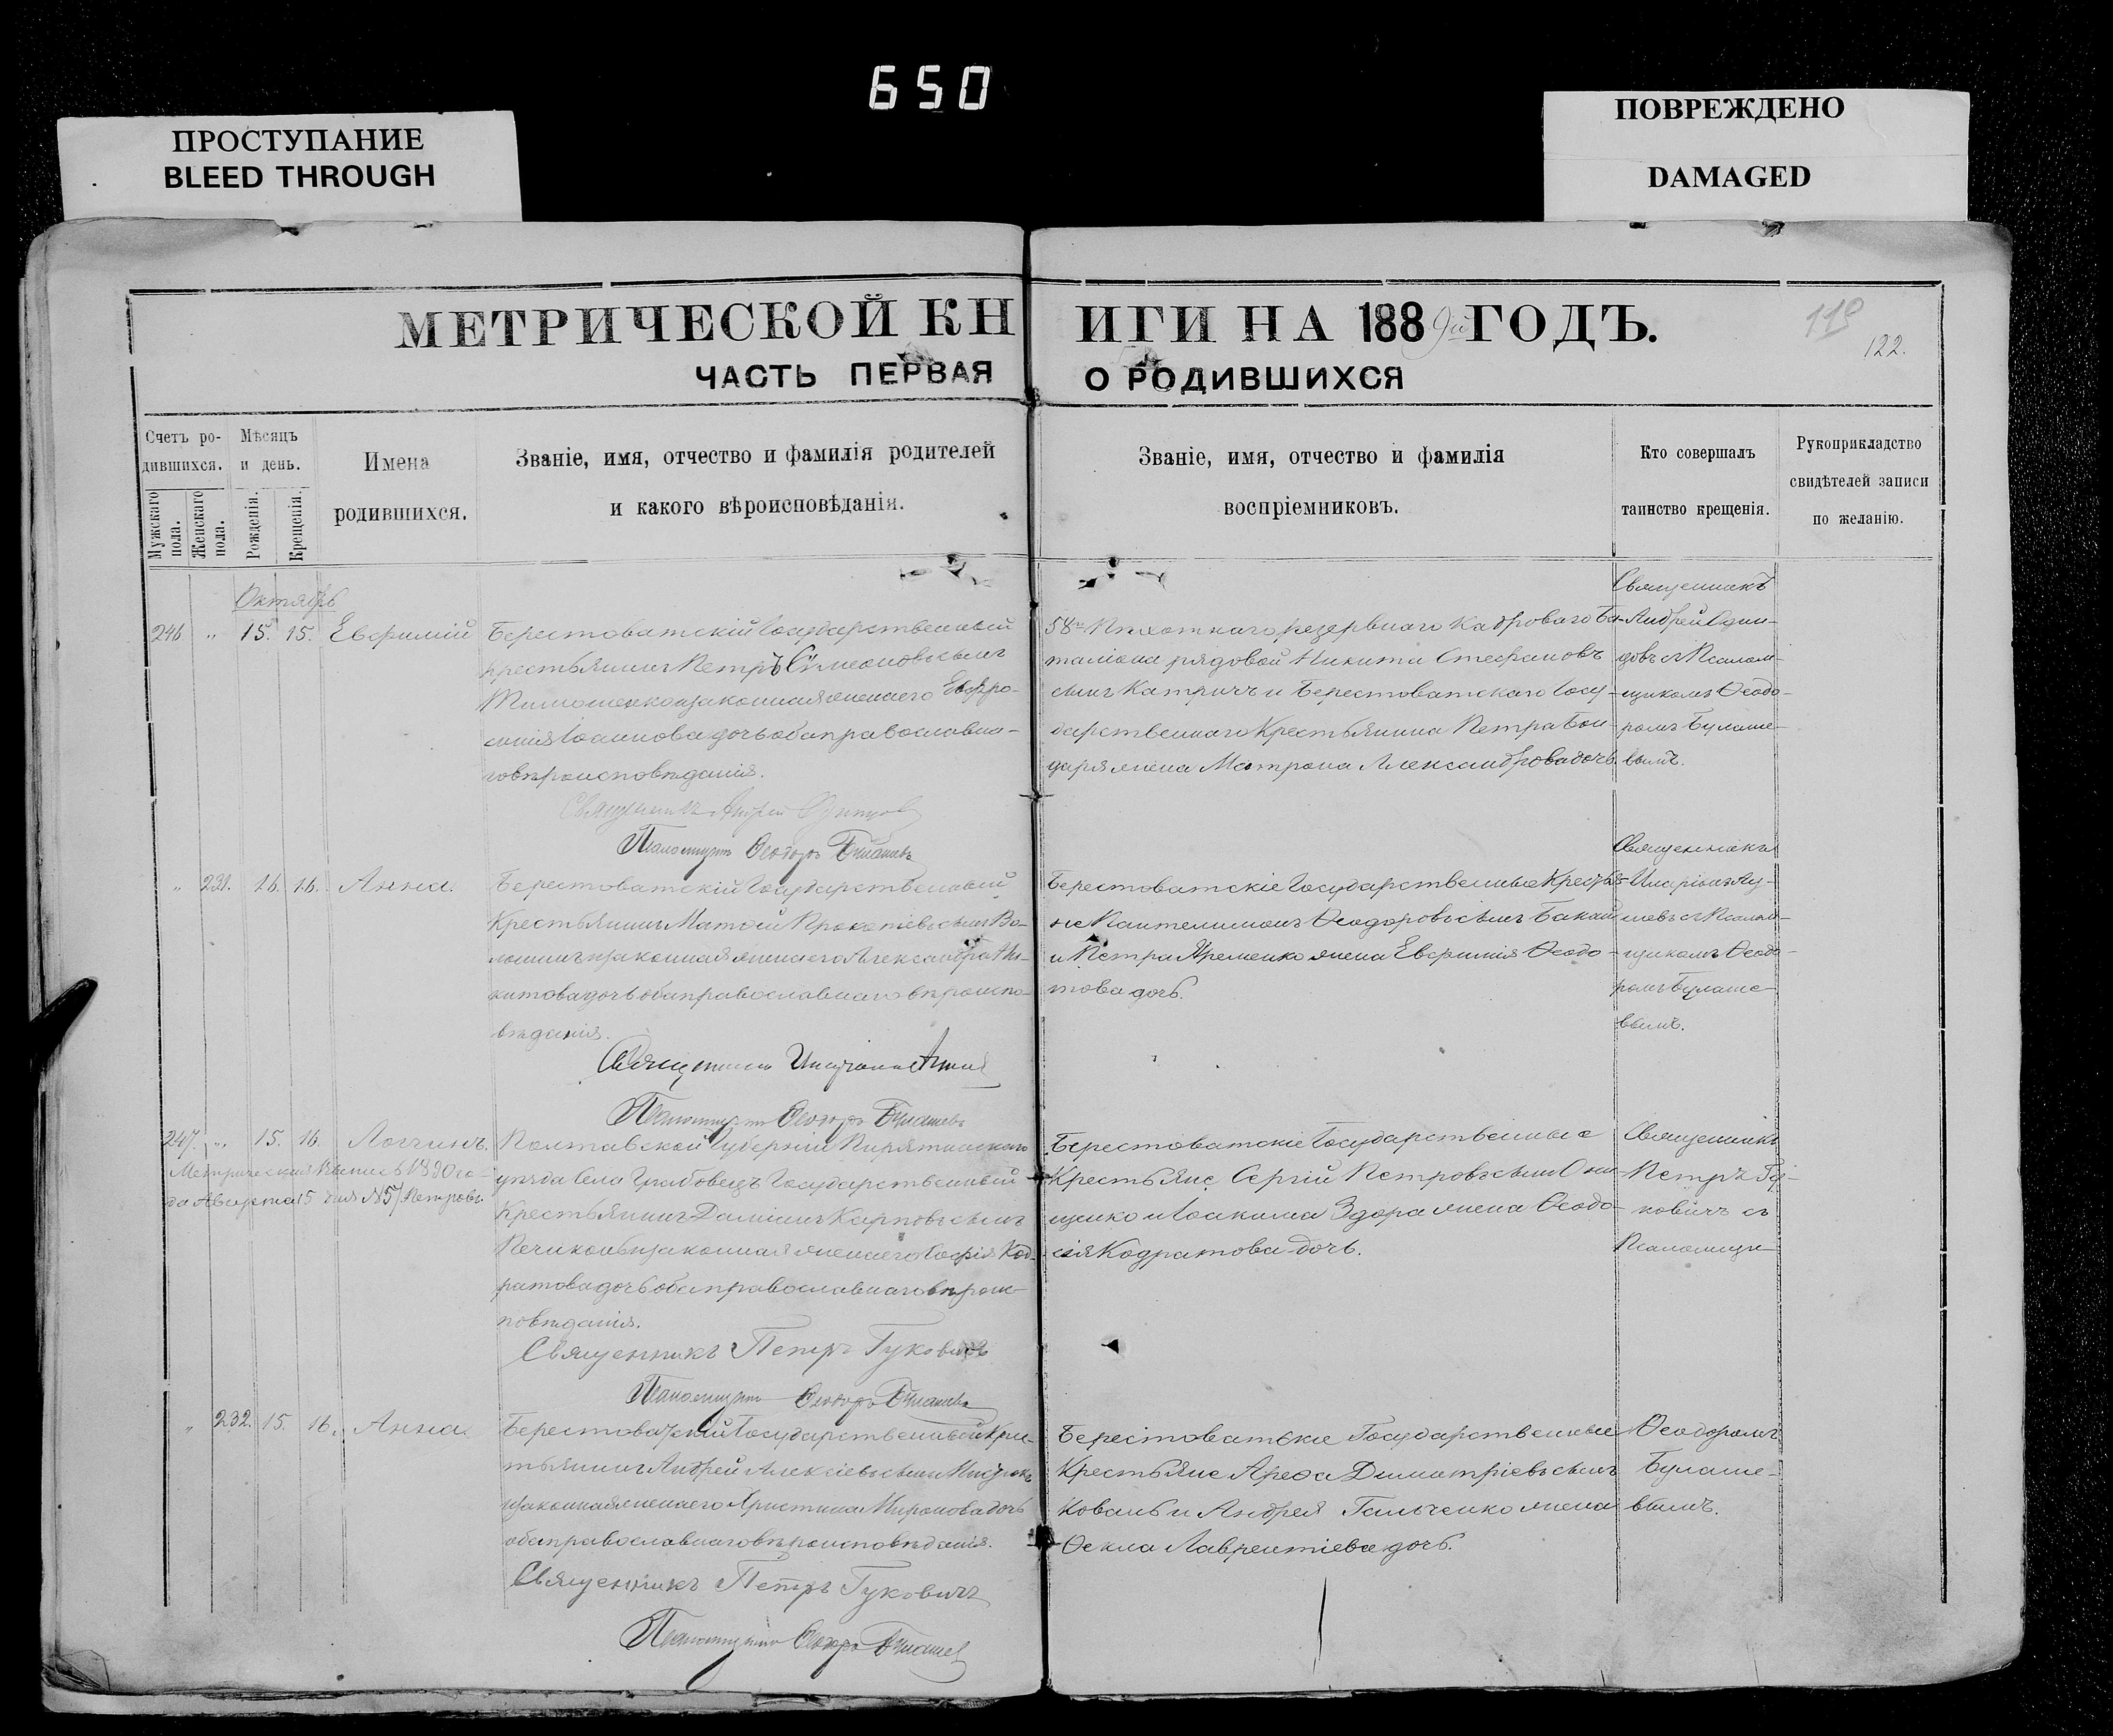 650
ПРОСТУПАНИЕ
BLEED THROUGH
ПОВРЕЖДЕНО
DAMAGED
МЕТРИЧЕСКОЙ КНИГИ НА 1889й ГОДЪ.
119
122.
ЧАСТЬ ПЕРВАЯ О РОДИВШИХСЯ
Счетъ родившихся.
Мужскаго пола.
Женскаго пола.
Мѣсяцъ и день.
Рожденія.
Крещенія.
Имена родившихся.
Званіе, имя, отчество и фамилія родителей
и какого вѣроисповѣданія.
Званіе, имя, отчество и фамилія
воспріемниковъ.
Кто совершалъ
таинство крещенія.
Рукоприкладство
свидѣтелей записи
по желанію.
Октябрь
246 " 15. 15. Евфимій
Берестоватскій Государственный
крестьянинъ Петръ Сѵмеоновъ сынъ
Тимошенко и законная жена его Евфро-
синія Іоаннова дочь оба православна-
го вѣроисповѣданія.
Священникъ Андрей Одинцовъ
Псаломщикъ Ѳеодоръ
58го Пѣхотнаго резервнаго Кадроваго Ба-
таліона рядовой Никита Стефановъ
сынъ Катричъ и Берестоватскаго Госу-
дарственнаго Крестьянина Петра Бон-
даря жена Матрона Александрова дочь.
Священникъ
Андрей Один-
цовъ съ Псалом-
щикомъ Ѳеодо-
ромъ Булаше-
вымъ.
" 231. 16. 16. Анна.
Берестоватскій Государственный
Крестьянинъ Матѳій Прокопіевъ сынъ Во-
лошинъ и законная жена его Александра Ни-
китова дочь оба православнаго вѣроиспо-
вѣданія.
Священникъ
Псаломщикъ Ѳеодоръ
Берестоватскіе Государственные Крестья-
не Пантелимонъ Ѳеодоровъ сынъ Бакай
и Петра Яременко жена Евфимія Ѳеодо-
това дочь.
Священникъ
съ Псалом-
щикомъ Ѳеодо-
ромъ Булаше-
вымъ.
247. " 15. 16. Логгинъ.
Метрическая Выпись 1890 го-
да Августа 5 дня №57 Петровъ.
Полтавской Губерніи Пирятинскаго
уѣзда Села Грабовецъ Государственный
Крестьянинъ Даміанъ Карповъ сынъ
и законная жена его Софія Код-
ратова дочь оба православнаго вѣроис-
повѣданія.
Священникъ Петръ Гуковичъ
Псаломщикъ Ѳеодоръ
Берестоватскіе Государственные
Крестьяне Сергій Петровъ сынъ Они-
щенко и Іоакима Здора жена Ѳеодо-
сія Кодратова дочь.
Священникъ
Петръ Гу-
ковичъ съ
Псаломщи-
" 232. 15. 16. Анна.
Берестоватскій Государственный Крес-
тьянинъ Андрей Алексіевъ сынъ
и законная жена его Христина Миронова дочь
оба православнаго вѣроисповѣданія.
Священникъ Петръ Гуковичъ
Псаломщикъ Ѳеодоръ
Берестоватскіе Государственные
Крестьяне Арефа Димитріевъ сынъ
Коваль и Андрея Гальченко жена
Ѳекла Лаврентіева дочь.
Ѳеодоромъ
Булаше-
вымъ.